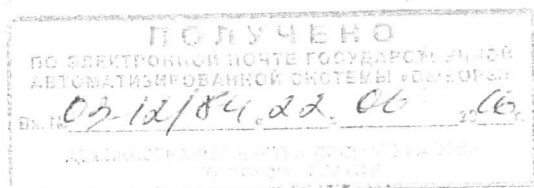 ПОЛУЧЕНО
ПО ЭЛЕКТРОННОЙ ПОЧТЕ ГОСУДАРСТВЕННОЙ
АВТОМАТИЗИРОВАННОЙ СИСТЕМЫ «ВЫБОРЫ»
Вх. № 03-12/84 22. 06 2016 г.